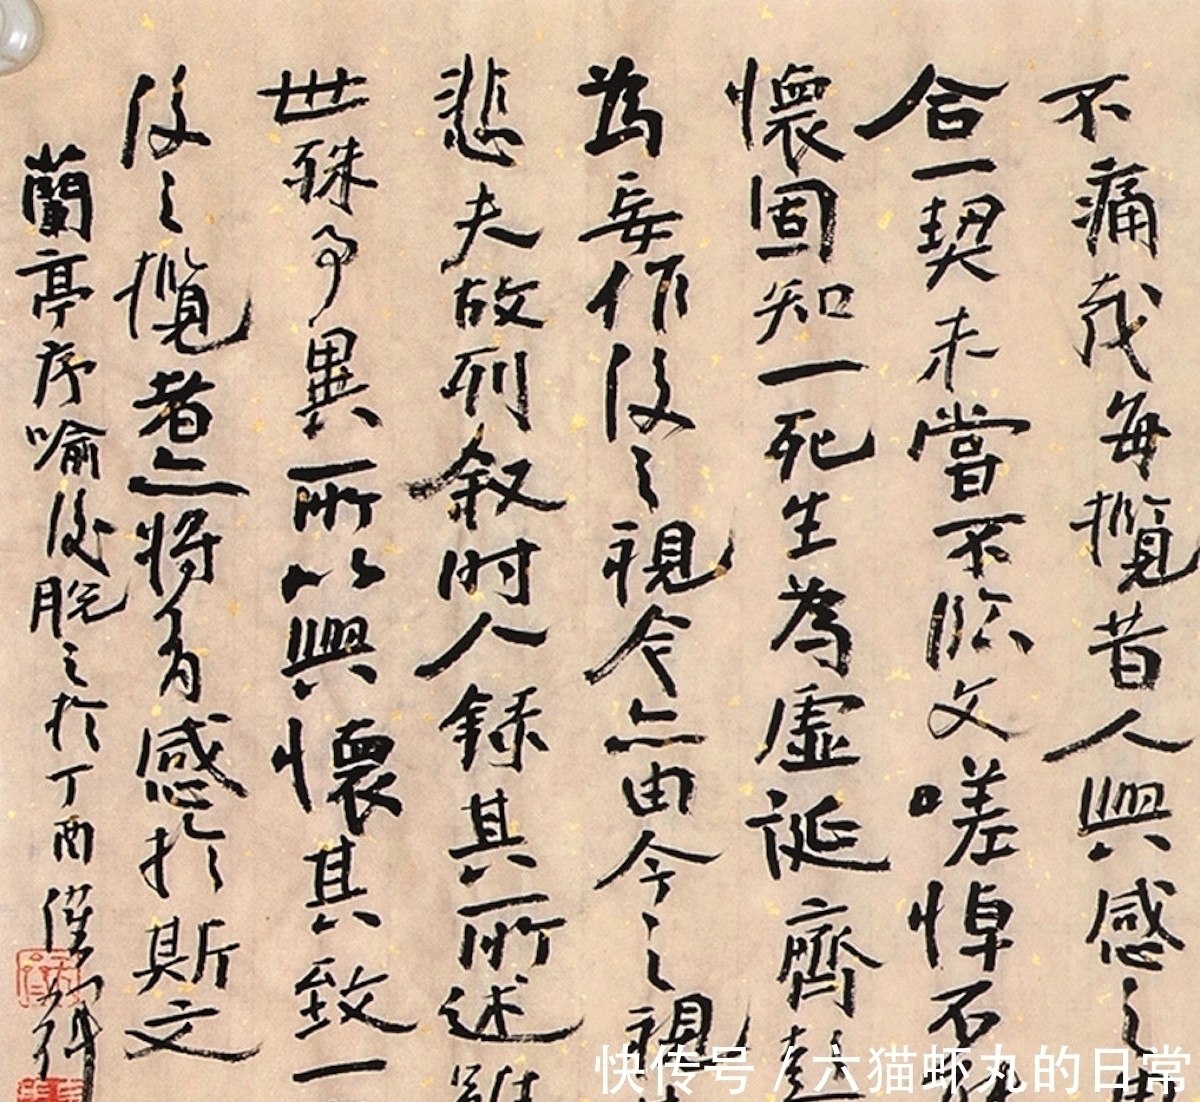 不痛哉每攬昔人興感之由
合一契未嘗不臨文嗟悼不
懷固知一死生為虛誕齊彭
為妄作後之視今亦由今之視
悲夫故列叙时人録其所述雖
世殊事異所以興懷其致一
後之攬者亦將有感於斯文
蘭亭序喻後脱之於丁酉
快传号/六猫虾丸的日常